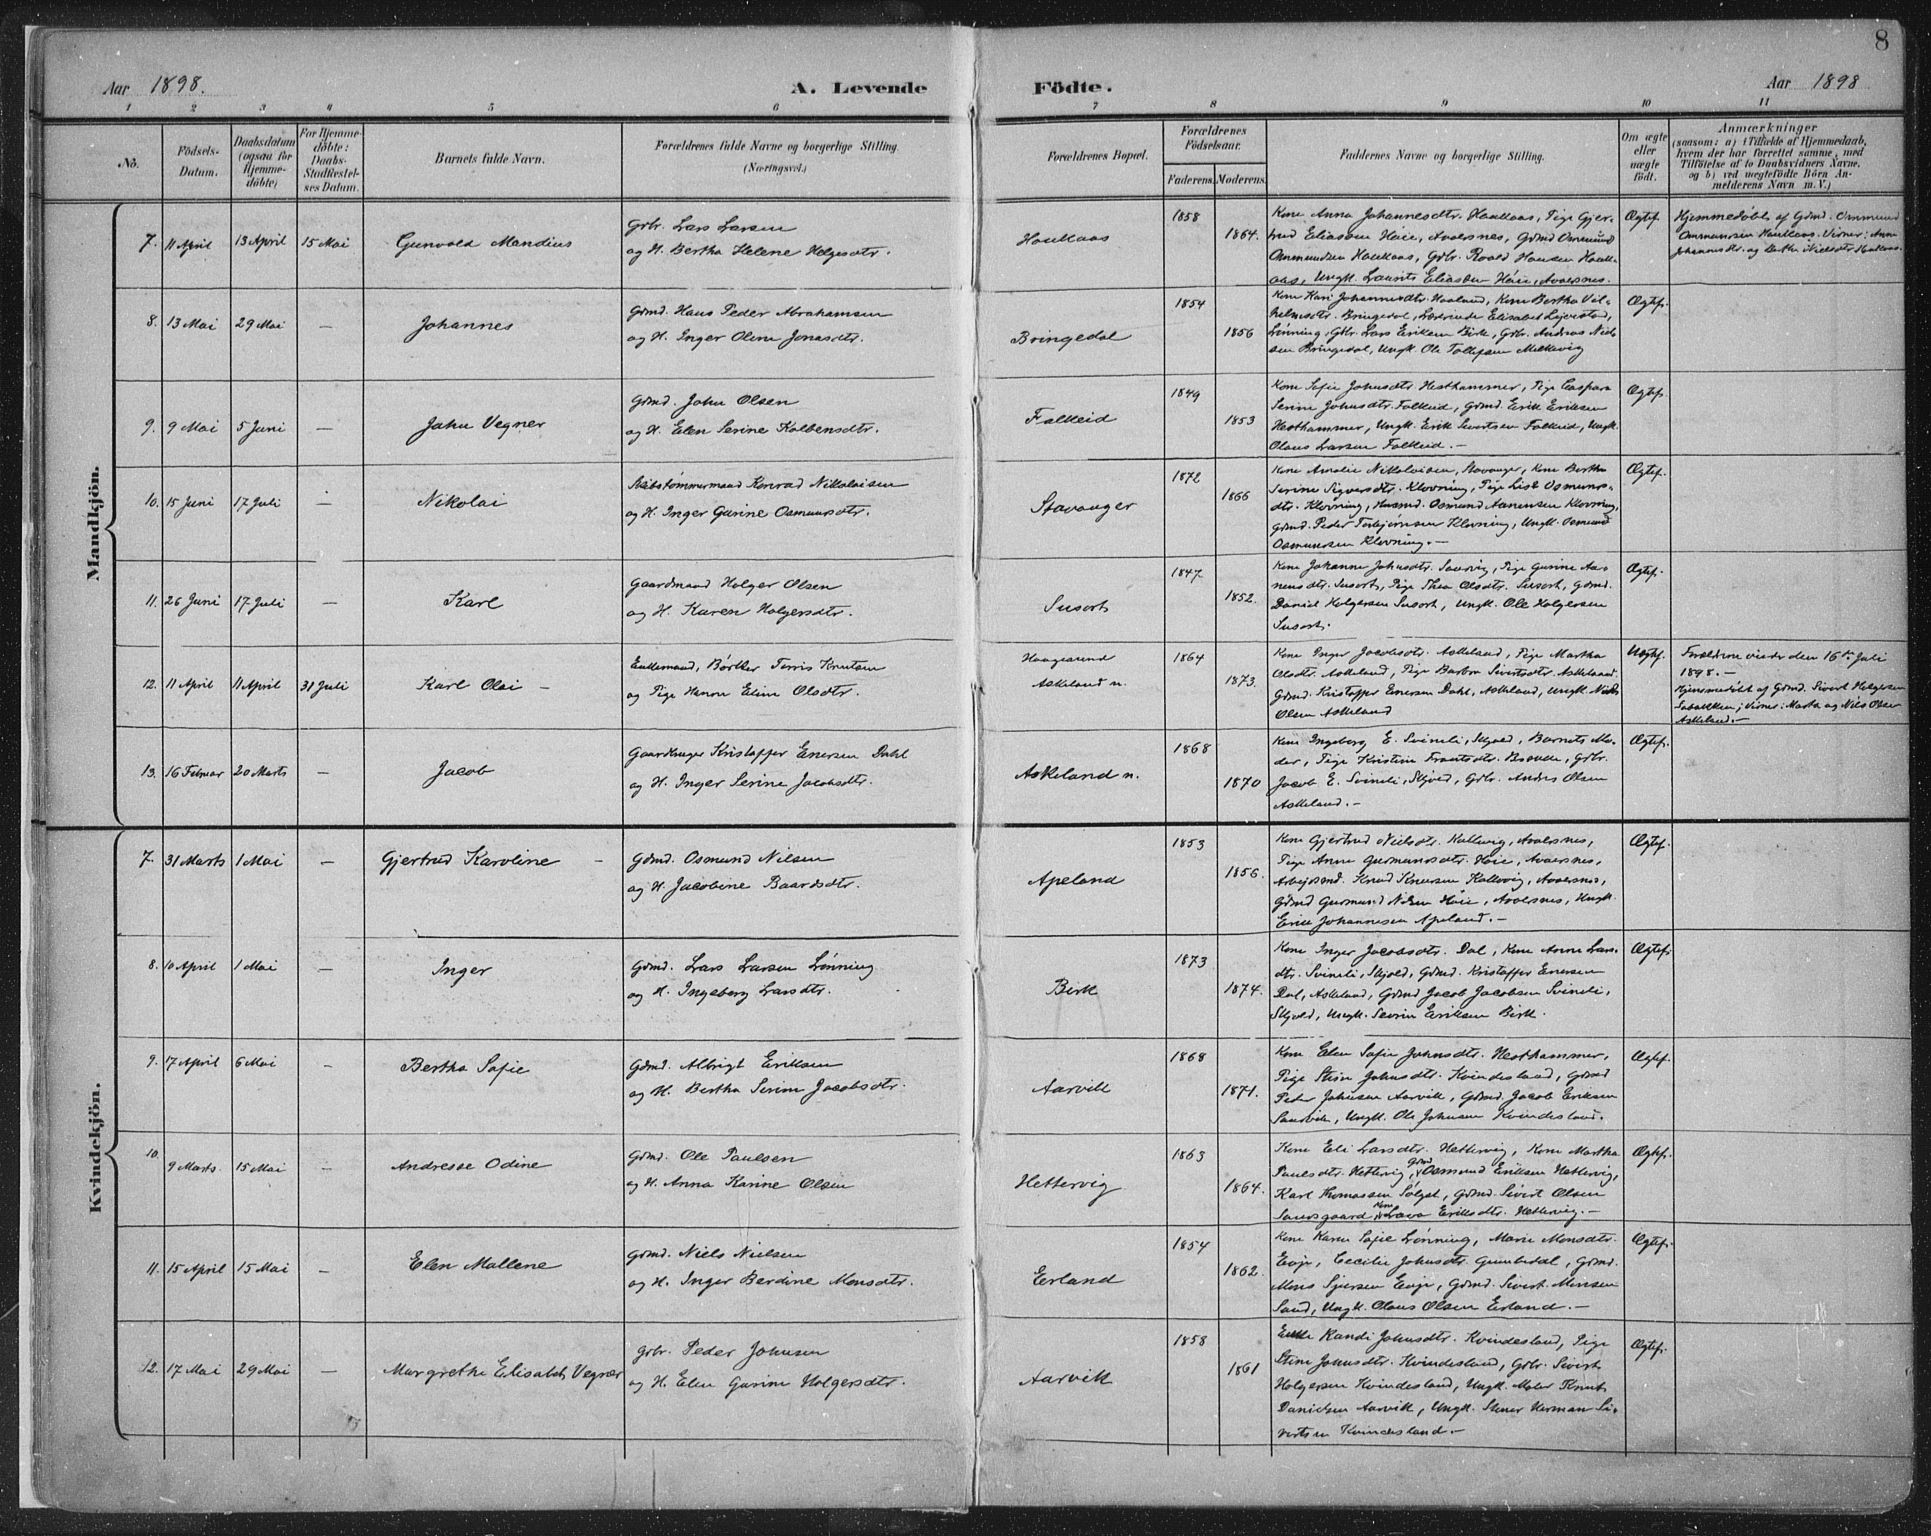 8
Aar 1898.
A. Levende Födte.
Aar 1898
1 2 3 4 5 6 7 8 9 10 11
No.
Födsels-Datum.
Daabsdatum (ogsaa for Hjemme-döbte)
For Hjemme-döbte: Daabs-Stadfæstel-ses Datum.
Barnets fulde Navn.
Forældrenes fulde Navne og borgerlige Stilling.
(Næringsvei.)
Forældrenes Bopæl.
Forældrenes Födselsaar.
Faderens. Moderens.
Faddernes Navne og borgerlige Stilling.
Om ægte eller uægte födt.
Anmærkninger
(saasom: a) i Tilfælde af Hjemmedaab,
hvem der har forrettet samme, med
Tilföielse af to Daabsvidners Navne,
og b) ved uægtefödte Börn An-
melderens Navn m. V.)
Mandkjön.
7. 11 April 13 April 15 Mai Gunvald Mandius
Grbr. Lars Larsen
og H. Bertha Helene Holgesdtr.
Haukaas 1858 1864.
Kone Anna Johannesdtr. Haukaas, Pige Gjer-
trud Eliassen Høie, Avaldsnes, Grdmd Osmund
Osmundsen Haukaas, Grbr. Roald Hansen Hauk-
aas, Ungk. Laurits Eliassen Høie, Avaldsnes.
Ægtef.
Hjemmedøbt af Grdmd. Osmund
Osmundsen Haukaas. Vidner: Anna
Johannesdtr. og Bertha Nielsdtr. Haukaas
8. 13 Mai 29 Mai — Johannes
Grdmd. Hans Peder Abrahamsen
og H. Inger Oline Jonasdtr.
Bringedal 1854 1856
Kone Kari Johannesdtr. Haaland, Kone Bertha Vil-
helmsdtr. Bringedal, Lærerinde Elisabet
Lønning, Grbr. Lars Eriksen Birk, Grbr. Andreas Niel-
sen Bringedal, Ungk. Ole Tollefsen Melkevig
Ægtef.
9. 9 Mai 5 Juni — John Vegner
Grdmd. John Olsen
og H. Elen Serine Kolbensdtr.
Falkeid 1849 1853
Kone Sofie Johnsdtr. Hesthammer, Pige Caspara
Serine Johnsdtr. Falkeid, Grdmd Erik Eriksen
Hesthammer, Ungk. Erik Sivertsen Falkeid, Ungk.
Olaus Larsen Falkeid. —
Ægtef.
10. 15 Juni 17 Juli — Nikolai
Skibstømmermand Konrad Nikolaisen
og H. Inger Gurine Osmundsdtr.
Stavanger 1872 1866
Kone Amalie Nikolaisen, Stavanger, Kone Bertha
Serine Sigversdtr. Klovning, Pige Lise Osmunds-
dtr. Klovning, Husmd. Osmund Aanensen Klovning,
Grdmd. Peder Torbjørnsen Klovning, Ungk. Osmund
Osmundsen Klovning. —
Ægtef.
11. 26 Juni 17 Juli — Karl
Gaardmand Holger Olsen
og H. Karen Holgersdtr.
Susort 1847 1852.
Kone Johanne Johnsdtr. Sandvig, Pige Gurine Aa-
nensdtr. Susort, Pige Thea Olsdtr. Susort, Grdmd.
Daniel Holgersen Susort, Ungk. Ole Holgersen
Susort.
Ægtef.
12. 11 April 11 April 31 Juli Karl Olai —
Enkemand, Bødker Torris Knutsen
og Pige Hanna Eline Olsdtr.
Haugesund
Askeland n. 1864 1873.
Kone Inger Jacobsdtr. Askeland, Pige Martha
Olsdtr. Askeland, Pige Barbra Sivertsdtr. Askeland.
Grdmd. Kristoffer Enersen Dahl, Askeland, Ungk. Niels
Olsen Askeland
Uægtef.
Forældrene viede den 16de Juli
1898. —
Hjemmedøbt af Grdmd. Sivert Holgersen
Vidner: Marta og Niels Olsen
Askeland. —
13. 16 Februar 20 Marts — Jacob
Gaardbruger Kristoffer Enersen Dahl
og H. Inger Serine Jacobsdtr.
Askeland n. 1868 1870
Kone Ingeborg E. Svineli, Skjold, Barnets Mo-
der, Pige Kristine Grbr.
Jacob E. Svineli, Skjold, Grbr. Andreas Olsen
Askeland. —
Ægtef.
Kvindekjön.
7. 31 Marts 1 Mai — Gjertrud Karoline —
Grdmd. Osmund Nilsen
og H. Jacobine Baardsdtr.
Apeland 1853 1856.
Kone Gjertrud Nielsdtr. Kallevig, Avaldsnes,
Pige Anne Gudmundsdtr. Høie, Avaldsnes,
Arbeidsmd. Knud Knudsen Kallevig, Avaldsnes,
Grdmd Gudmund Nilsen Høie, Avaldsnes, Ungk.
Erik Johannesen Apeland. —
Ægtef.
8. 10 April 1 Mai — Inger
Grdmd. Lars Larsen Lønning
og H. Ingeborg Larsdtr.
Birk 1873 1874.
Kone Inger Jacobsdtr. Dal, Kone Anne Lars-
dtr. Svineli, Skjold, Grdmd. Kristoffer Enersen
Dal, Askeland, Grdmd Jacob Jacobsen Svineli,
Skjold, Ungk. Severin Eriksen Birk.
Ægtef.
9. 17 April 6 Mai — Bertha Sofie
Grdmd. Albrigt Eriksen
og H. Bertha Serine Jacobsdtr.
Aarvik 1868 1871.
Kone Elen Sofie Johnsdtr. Hesthammer,
Pige Stine Johnsdtr. Kvindesland, Grdmd
Peder Johnsen Aarvik, Grdmd. Jacob Eriksen
Sandvik, Ungk. Ole Johnsen Kvindesland.
Ægtef.
10. 9 Marts 15 Mai — Andresse Odine
Grdmd. Ole Paulsen
og H. Anna Karine Olsen
Hettervig 1863 1864.
Kone Eli Larsdtr. Hettervig, Kone Martha
Paulsdtr. Hettervig, Grdmd Osmund Eriksen Hettervig,
Karl Thomassen Solgst, Grdmd. Sivert Olsen
Sandsgaard, Kone Lava Eriksdtr. Hettervig. —
Ægtef.
11. 15 April 15 Mai — Elen Mallene
Grdmd. Niels Nielsen
og H. Inger Berdine Monsdtr.
Erland 1854 1862.
Kone Karen Sofie Lønning, Marie Monsdtr.
Eoje, Cecilie Johnsdtr. Grindedal, Grdmd.
Mons Sjursen Eoje, Grdmd. Sivert Monsen
Sand, Ungk. Olaus Olsen Erland. —
Ægtef.
12. 17 Mai 29 Mai — Margrethe Elisabeth Vegner
Grbr. Peder Johnsen
og H. Elen Gurine Holgersdtr.
Aarvik 1858 1861
Enke Randi Johnsdtr. Kvindesland, Pige
Stine Johnsdtr. Kvindesland, Grbr. Sivert
Holgersen Kvindesland, Ungk. Maler Knut
Danielsen Aarvik, Ungk. Stener Herman Si-
vertsen Kvindesland. —
Ægtef.